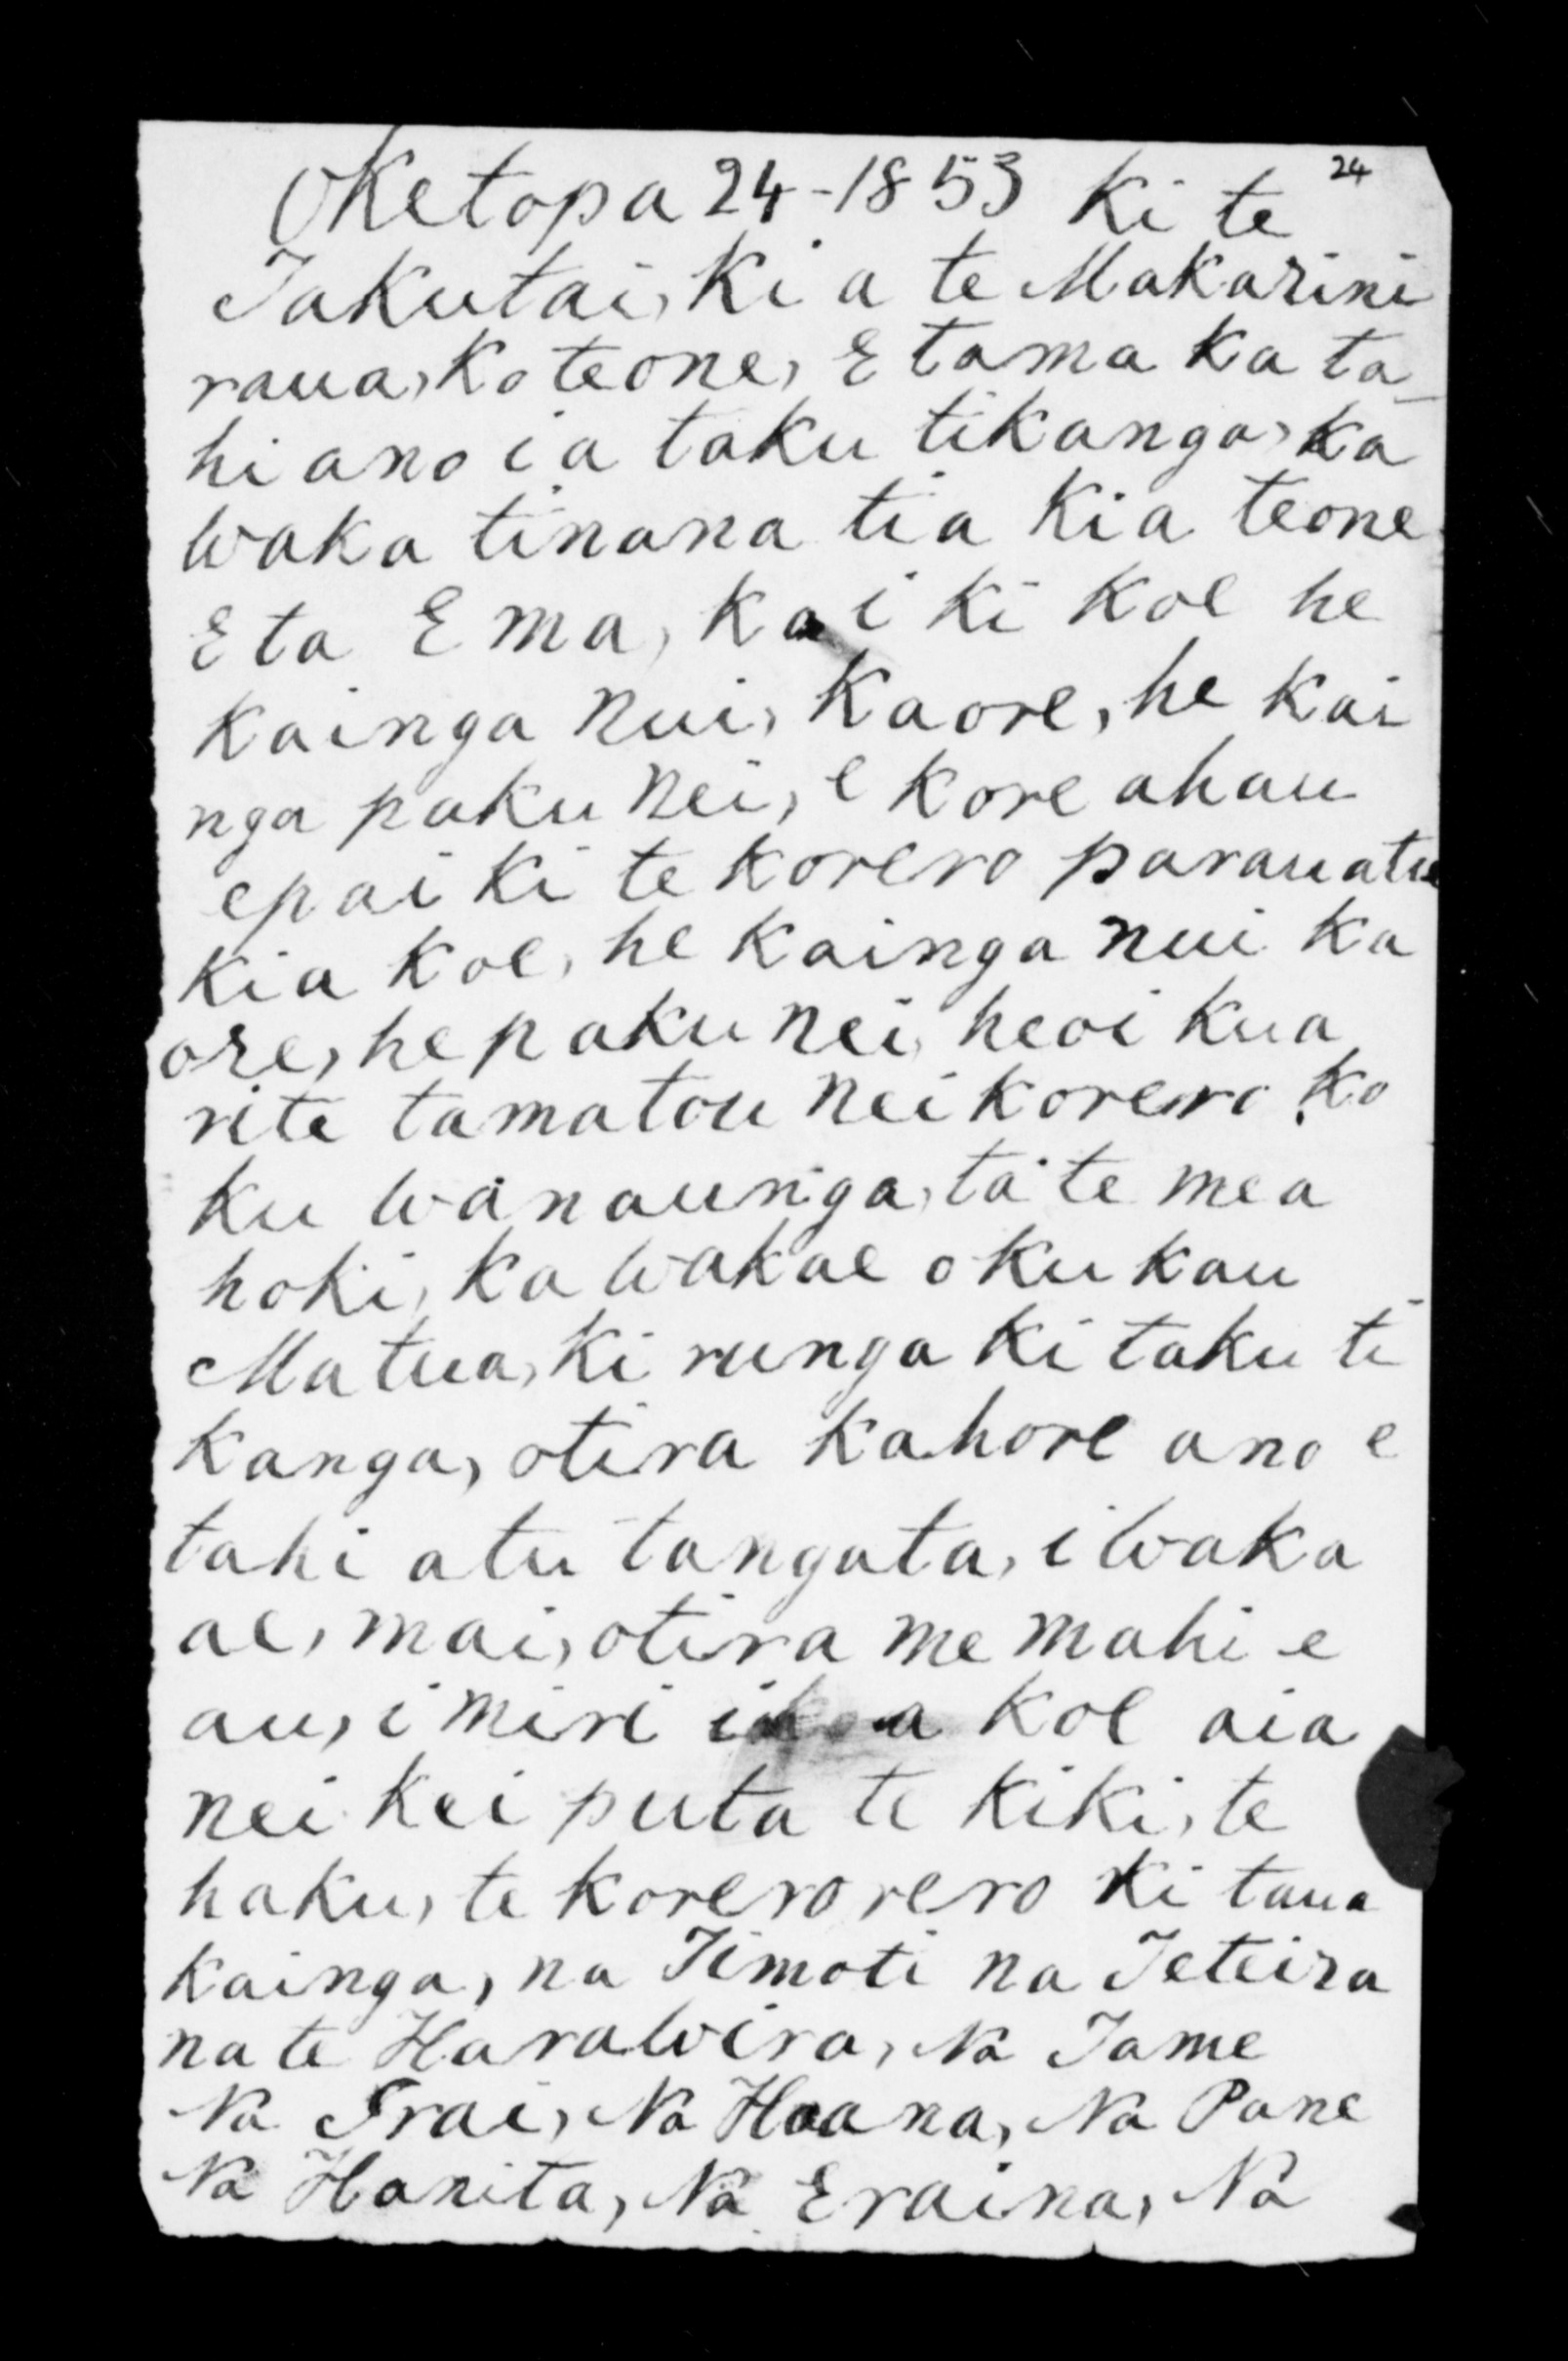 Oketopa 24-1853 Ki te 24
Takutai, Ki a te Makarini
raua, Ko teone, E tama Ka ta_
hi ano i a taku tikanga, Ka
waka tinana tia Kia teone
E ta E ma, Ka i ki Koe he
Kainga Nui, Kaore, he Kai
nga paku Nei, e Kore ahau
epai Ki te Korero parauatu
Kia Koe, he Kainga nui Ka
ore, he paku Nei, heoi Kua
rite tamatou Nei Korero Ko
ku wanaunga, ta te mea
hoki, Ka wakae oku Kau
Matua, Ki runga Ki taku ti
Kanga, otira Kahore ano e
tahi atu tangata, i waka
ae, mai, otira me mahi e
au, i miri Koe aia
nei Kei puta te Kiki, te
haku, te Korerorero Ki taua
Kainga, na Timoti na Teteira
na te Harawira, Na Tame
Na Irai, Na Hoana, Na Pane
Na Hanita, Na Eraina, Na